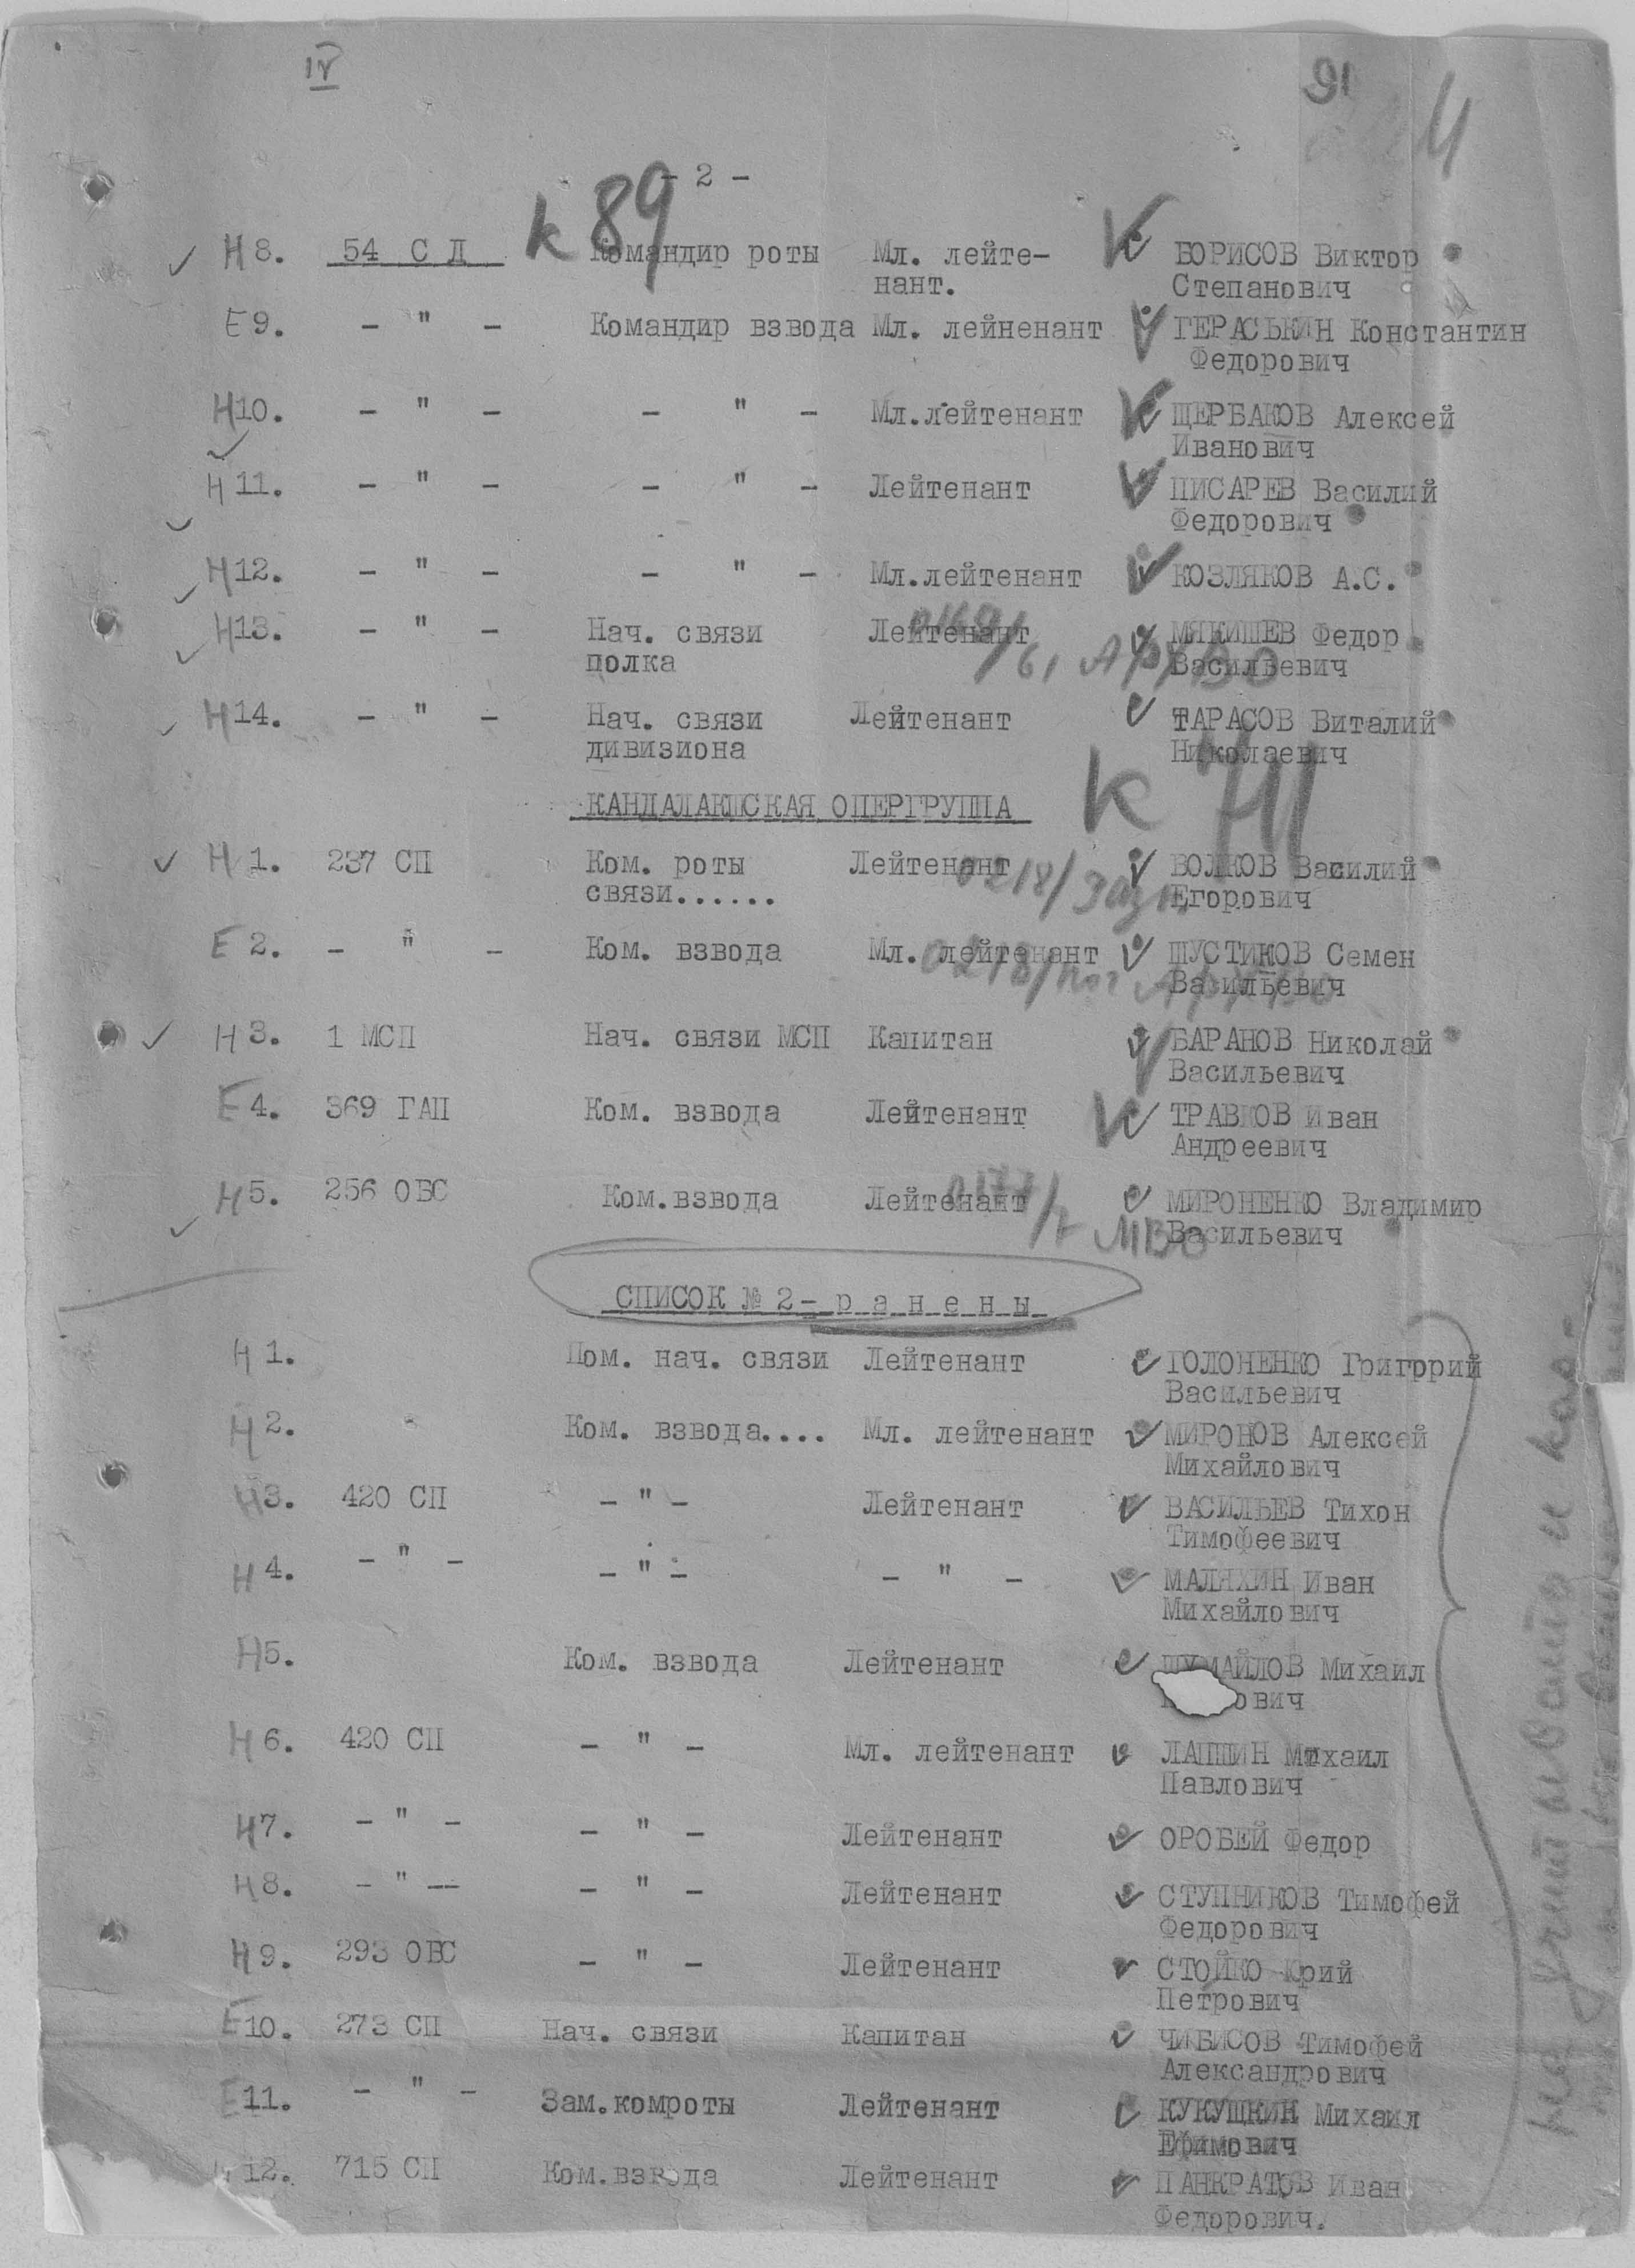 IV
91
4
- 2 -
к 89
Н 8. 54 С Д Командир роты Мл. лейте- БОРИСОВ Виктор
нант. Степанович
Е 9. - " - Командир взвода Мл. лейненант ГЕРАСЬКИН Константин
Федорович
Н 10. - " - - " - Мл.лейтенант ЩЕРБАКОВ Алексей
Иванович
Н 11. - " - - " - Лейтенант ПИСАРЕВ Василий
Федорович
Н 12. - " - - " - Мл.лейтенант КОЗЛЯКОВ А.С.
Н 13. - " - Нач. связи Лейтенант МЯКИШЕВ Федор
полка Васильевич
Н 14. - " - Нач. связи Лейтенант ТАРАСОВ Виталий
дивизиона Николаевич
КАНДАЛАКШСКАЯ ОПЕРГРУППА
Н 1. 237 СП Ком. роты Лейтенант ВОЛКОВ Василий
связи...... Егорович
Е 2. - " - Ком. взвода Мл. лейтенант ШУСТИКОВ Семен
Васильевич
Н 3. 1 МСП Нач. связи МСП Капитан БАРАНОВ Николай
Васильевич
Е 4. 369 ГАП Ком. взвода Лейтенант ТРАВКОВ Иван
Андреевич
Н 5. 256 ОБС Ком.взвода Лейтенант МИРОНЕНКО Владимир
МВО Васильевич
СПИСОК № 2 - р а н е н ы
Н 1. Пом. нач. связи Лейтенант ГОЛОНЕНКО Григорий
Васильевич
Н 2. Ком. взвода.... Мл. лейтенант МИРОНОВ Алексей
Михайлович
Н 3. 420 СП - " - Лейтенант ВАСИЛЬЕВ Тихон
Тимофеевич
Н 4. - " - - " - - " - МАЛЯХИН Иван
Михайлович
Н 5. Ком. взвода Лейтенант ШУМАЙЛОВ Михаил
ович
Н 6. 420 СП - " - Мл. лейтенант ЛАПШИН Михаил
Павлович
Н 7. - " - - " - Лейтенант ОРОБЕЙ Федор
Н 8. - " -- - " - Лейтенант СТУПНИКОВ Тимофей
Федорович
Н 9. 293 ОБС - " - Лейтенант СТОЙКО Юрий
Петрович
Е 10. 273 СП Нач. связи Капитан ЧИБИСОВ Тимофей
Александрович
Е 11. - " - Зам.комроты Лейтенант КУКУШКИН Михаил
Ефимович
12. 715 СП Ком.взвода Лейтенант ПАНКРАТОВ Иван
Федорович.